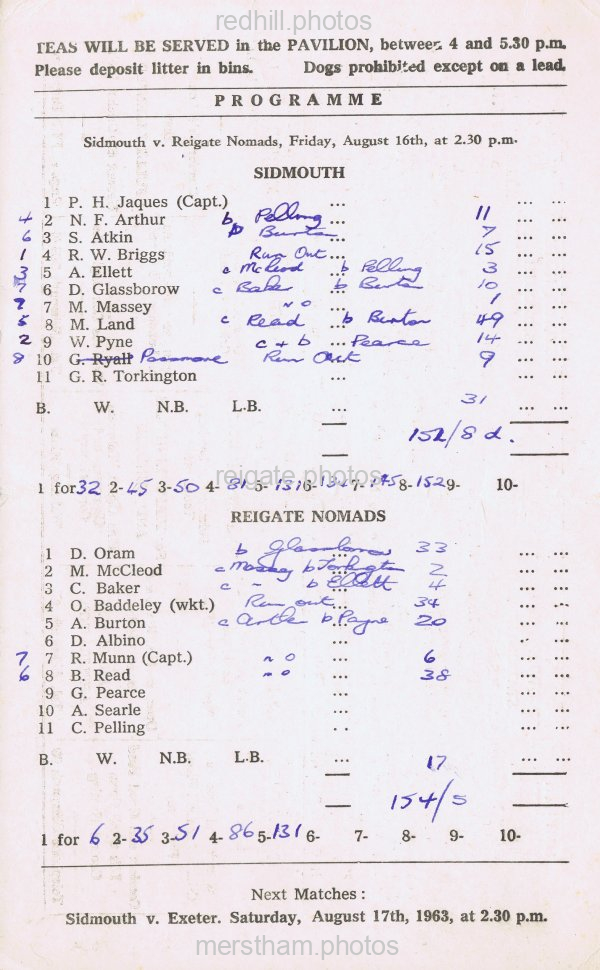 redhill.photos
TEAS WILL BE SERVED in the PAVILION, between 4 and 5.30 p.m.
Please deposit litter in bins. Dogs prohibited except on a lead.
PROGRAMME
Sidmouth v. Reigate Nomads, Friday, August 16th, at 2.30 p.m.
SIDMOUTH
1 P. H. Jaques (Capt.) ... ... ...
4 2 N. F. Arthur b Pelling ... 11 ... ...
6 3 S. Atkin b Burton 7 ... ...
1 4 R. W. Briggs Run Out ... 15 ... ...
3 5 A. Ellett c McLeod ... b Pelling 3 ... ...
7 6 D. Glassborow c Baker b Burton 10 ... ...
7 M. Massey no ... 1 ... ...
5 8 M. Land c Read ... b Burton 49 ... ...
2 9 W. Pyne c + b ... Pearce 14 ... ...
8 10 G. Ryall Passmore Run Out 9 ... ...
11 G. R. Torkington ... ... ...
B. W. N.B. L.B. ... 31 ... ...
152/8 d.
1 for 32 2- 45 3- 50 4- 81 5- 131 6- 7- 145 8- 152 9- 10-
reigate.photos
REIGATE NOMADS
1 D. Oram b Glassborow 33 ... ...
2 M. McCleod c Massey b Torkington 2 ... ...
3 C. Baker c - b Ellett 4 ... ...
4 O. Baddeley (wkt.) Run out ... 34 ... ...
5 A. Burton c b Payne 20 ... ...
6 D. Albino ... ... ...
7 7 R. Munn (Capt.) n o ... 6 ... ...
6 8 B. Read n o ... 38 ... ...
9 G. Pearce ... ... ...
10 A. Searle ... ... ...
11 C. Pelling . . ... ...
B. W. N.B. L.B. ... 17 ... ...
154/5
1 for 6 2- 35 3- 51 4- 86 5- 131 6- 7- 8- 9- 10-
Next Matches :
Sidmouth v. Exeter. Saturday, August 17th, 1963, at 2.30 p.m.
merstham.photos